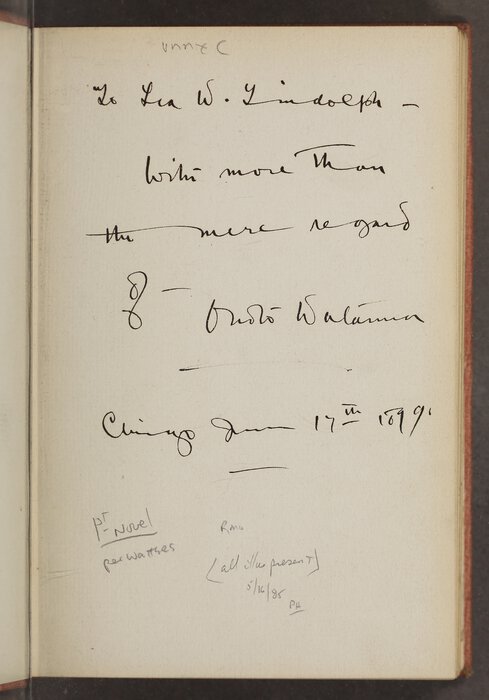 To Lea W. Lindolph –
With more than
the mere regard
of – Onoto Watanna
Chicago June 17th 1899.
pt Novel
per Watters
RMW
(all illus present)
5/16/85
PH